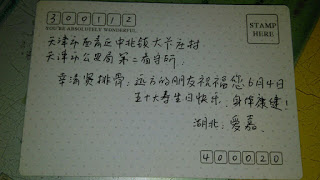 300112
YOU'RE ABSOLUTELY WONDERFUL.
STAMP
HERE
天津市西青区中北镇大芥庄村
天津市公安局第二看守所
辜海 排骨：远方的朋友祝福您6月4日
五十大寿生日快乐，身体康健！
湖北：爱嘉
400020